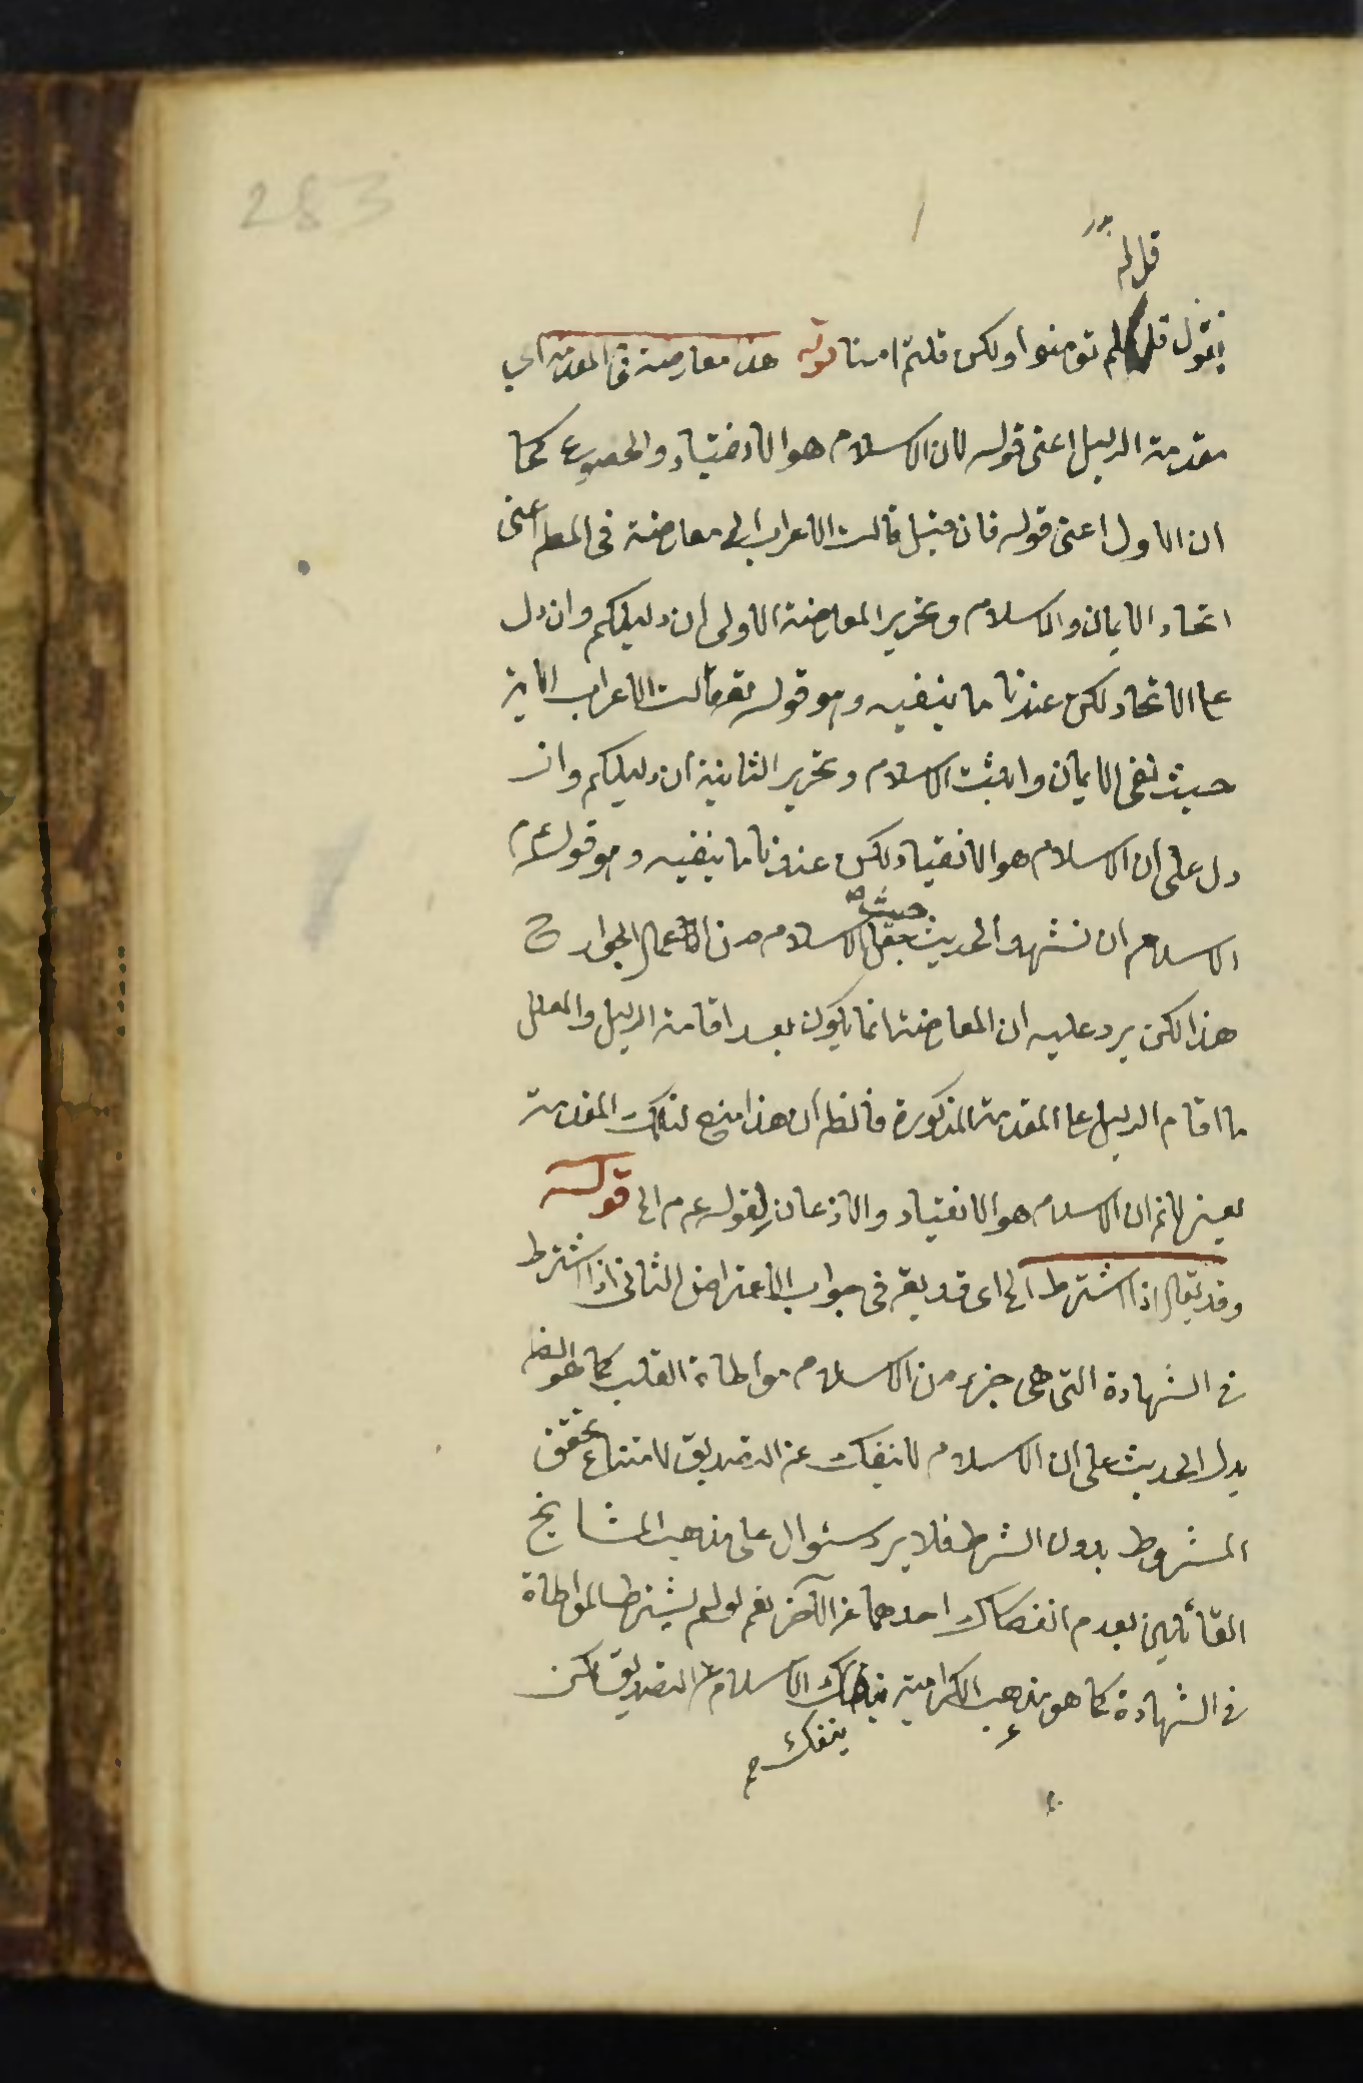 283
قل لم
بقول قل لم تومنوا ولكن قلتم امنا قوله هذه معارضة فى المقدمة اى
مقدمة الدليل اعنى قوله لان الاسلام هو الانقياد والخضوع كما
ان الاول اعنى قوله فان قيل قالت الاعراب الخ معارضة فى المط اعنى
اتحاد الايمان والاسلام وتحرير المعارضة الاولى ان دليلكم وان دل
على الاتحاد لكن عندنا ما ينفيه وهو قوله تع قالت الاعراب الاية
حيث نفى الايمان واثبت الاسلام وتحرير الثانية ان دليلكم وان
دل على ان الاسلام هو الانقياد لكن عندنا ما ينفيه وهو قوله عم
الاسلام ان تشهد الحديث حيث جعل الاسلام من الاعمال الجوارح
هذا لكن يرد عليه ان المعارضة انما يكون بعد اقامة الدليل والمعلل
ما اقام الدليل على المقدمة المذكورة فالظ ان هذا منع لتلك المقدمة
يعنى لانم ان الاسلام هو الانقياد والاذعان لقوله عم الخ قوله
وقد يقال اذا اشترط الخ اى قد يقر فى جواب الاعتراض الثانى اذا اشترط
فى الشهادة التى هى جزء من الاسلام مواطاة القلب كما هو الظ
يدل الحديث على ان الاسلام لا ينفك عن التصديق لامتناع تحقق
المشروط بدون الشرط فلا يرد سئوال على مذهب المشايخ
القائلين بعدم انفكاك احدهما عن الآخر نعم لو لم يشترط المواطاة
فى الشهادة كما هو مذهب الكرامية ينفك الاسلام عن التصديق لكن
ينفك